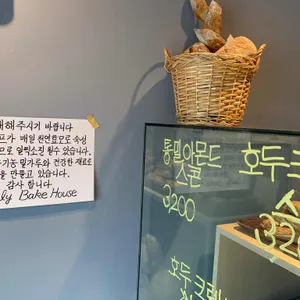 해해주시기 바랍니다
프가 매일 천연효모로 숙성
므로 일찍 소진 될수 있습니다.
기능 밀가루와 건강한 재료로
을 만들고 있습니다.
감사 합니다.
ly Bake House
통밀아몬드
스콘
3,200
호두크
스
3,2
호두 크랜